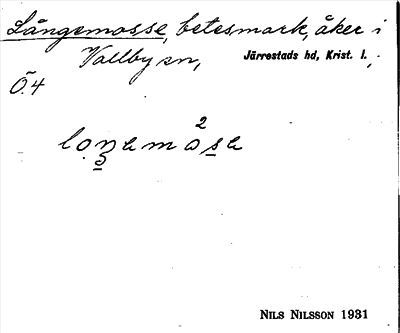 Långemosse, betesmark, åker i
Vallby sn, Järrestads hd, Krist. l.,
Ö.4
2
loŋemosa
NILS NILSSON 1931